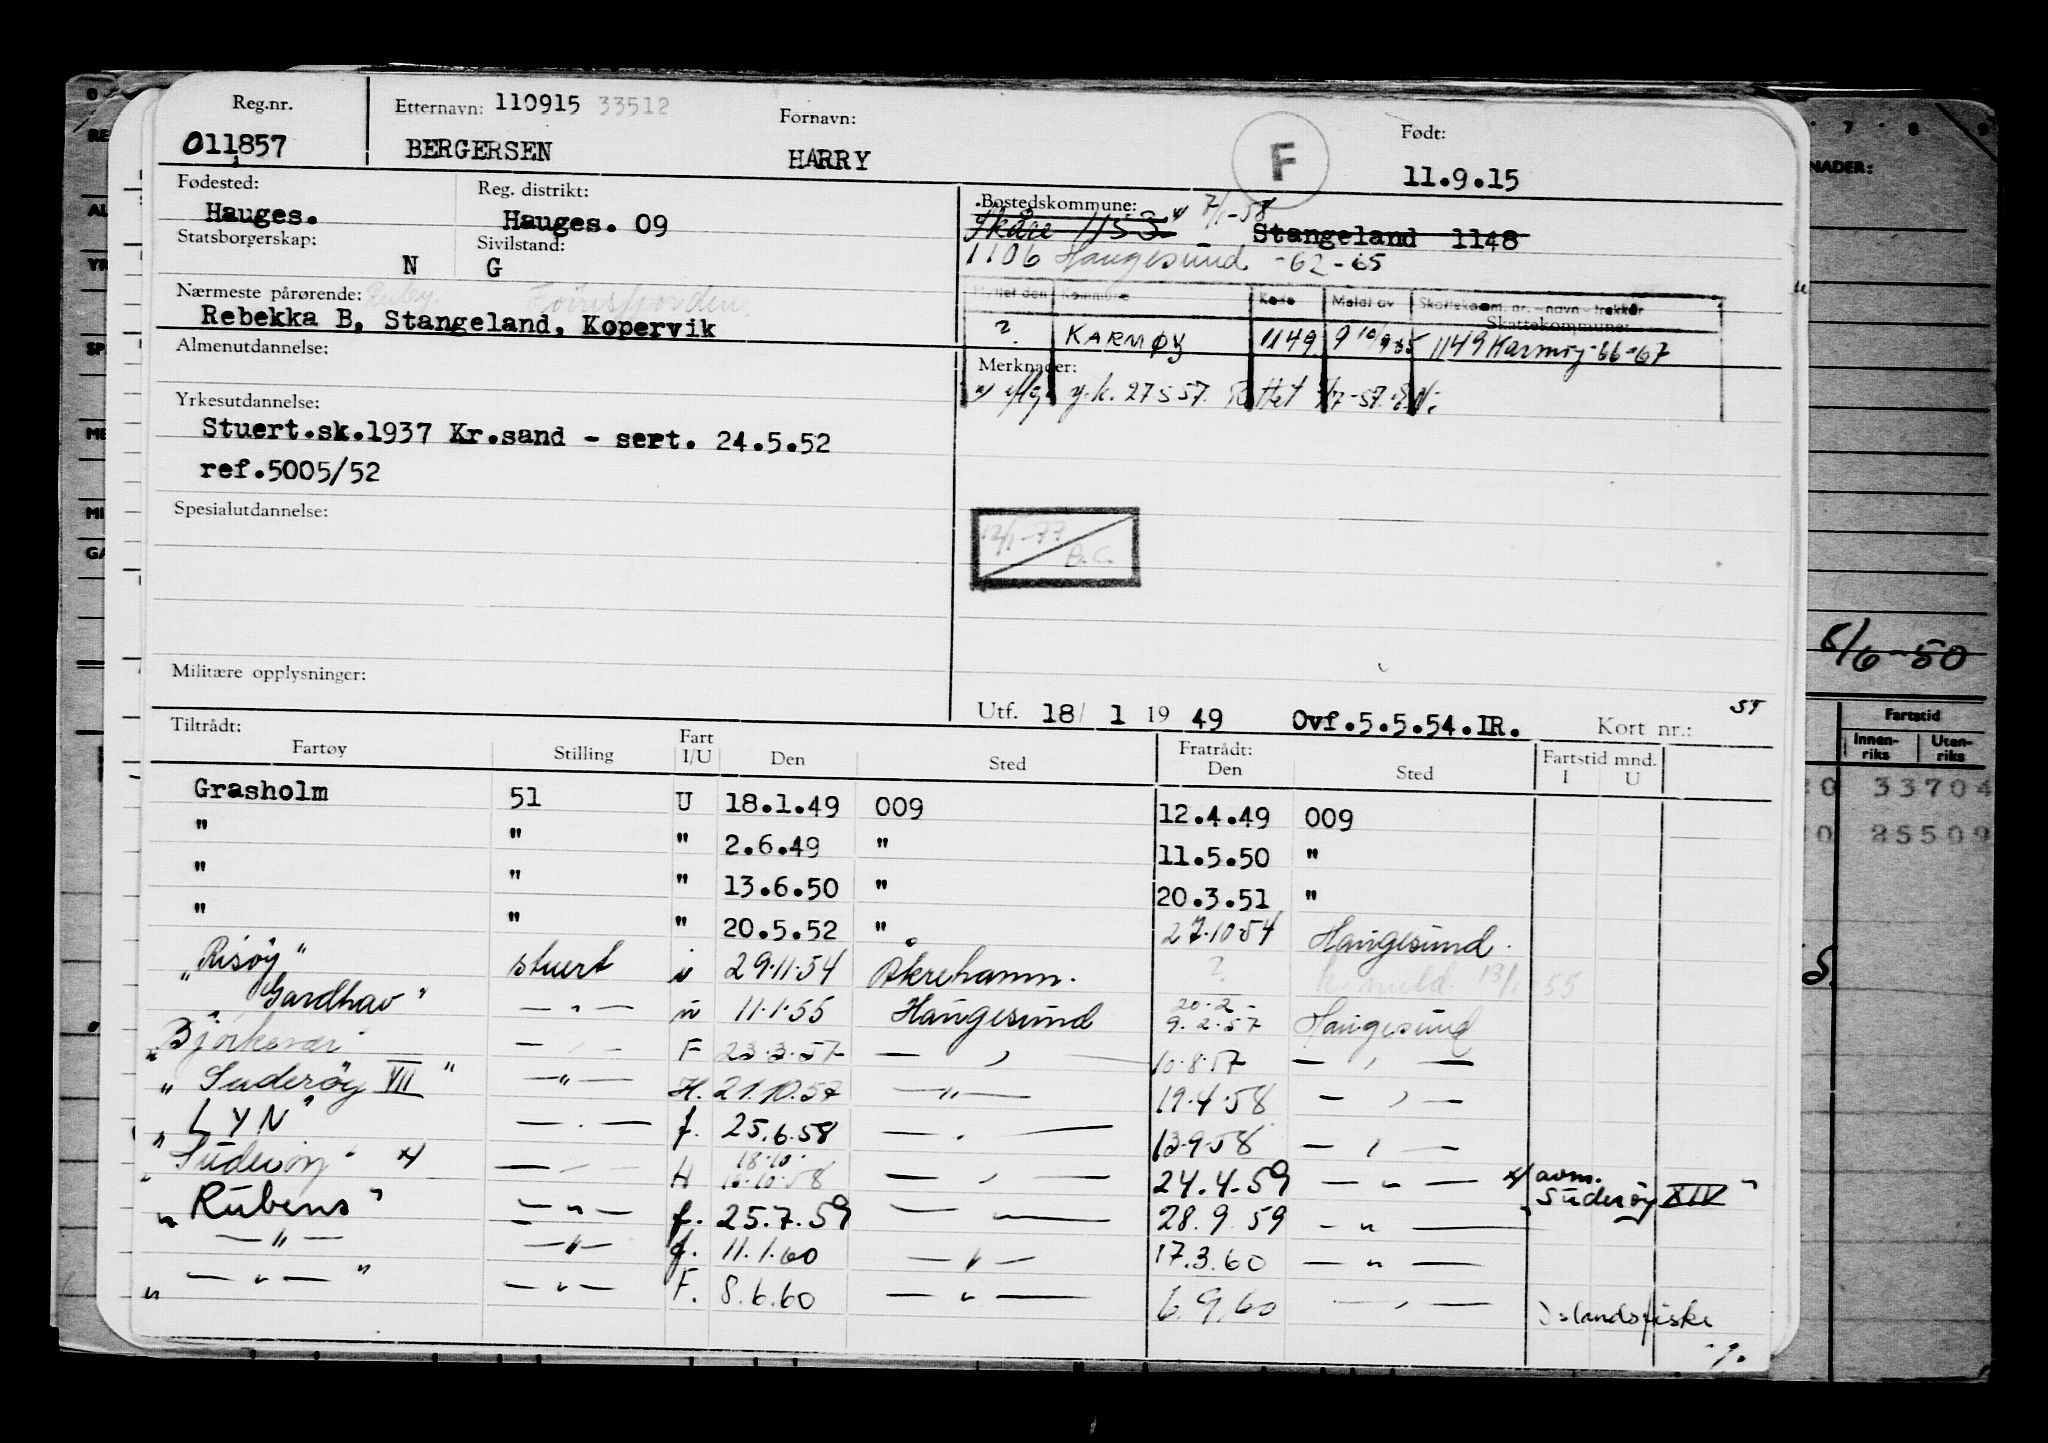 Reg.nr. Etternavn: 110915 33512 Fornavn: Født:
011857 BERGERSEN HARRY F 11.9.15
Fødested: Reg. distrikt: Bostedskommune:
Hauges. Hauges. 09 Skåre 1153 7/1-58 Stangeland 1148
Statsborgerskap: Sivilstand: 1106 Haugesund -62-65
N G
Nærmeste pårørende: Flyttet den Kommune Kode Meldt av Skattekom. nr. - navn - trekkår
Rebekka B, Stangeland, Kopervik Skattekommune:
? KARMØY 1149 1149 Karmøy-66-67
Almenutdannelse: Merknader:
y.k. 27557.
Yrkesutdannelse:
Stuert.sk.1937 Kr.sand - sert. 24.5.52
ref.5005/52
Spesialutdannelse:
12/1-77
B.C.
5/6-50
Militære opplysninger:
Utf. 18/ 1 19 49 Ovf.5.5.54.IR. Kort nr.:
Tiltrådt: Fratrådt:
Fartøy Stilling Fart I/U Den Sted Den Sted Fartstid mnd. I U
Grasholm 51 U 18.1.49 009 12.4.49 009
" " " 2.6.49 " 11.5.50 "
" " " 13.6.50 " 20.3.51 "
" " " 20.5.52 " 27.10.54 Haugesund.
"Risöy" stuert u 29.11.54 Åkrehamn. ? 13/1 55
"Gardhav" — " — u 11.1.55 Haugesund 20.2- 9.2.57 Haugesund
F 23.3.57 — " — 10.8.57 — " —
"Suderøy VII" — " — H. 21.10.57 — " — 19.4.58 — " —
"LYN" — " — f. 25.6.58 — " — 13.9.58 — " —
"Suderöy" x/ — " — H 18.10. 16.10.58 — " — 24.4.59 — " — x/ avm. "Suderøy XIV"
"Rubens" — " — f. 25.7.59 — " — 28.9.59 — " —
— " — — " — f. 11.1.60 — " — 17.3.60 — " —
" — " — " — " — F. 8.6.60 — " — 6.9.60 — " — Islandsfiske
Fartstid
Innen-riks Uten-riks
33704
85509